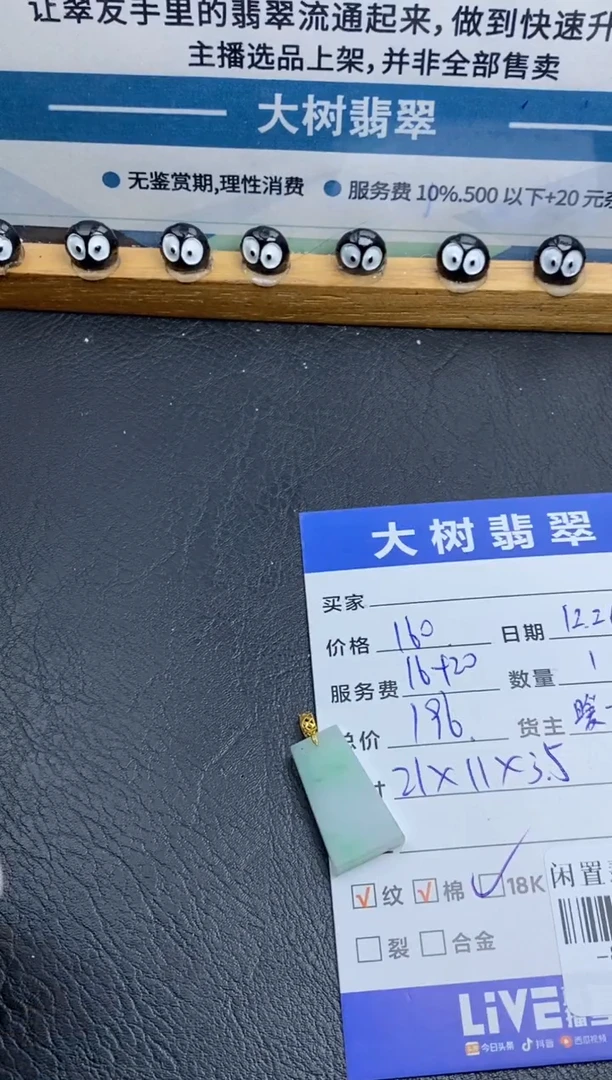 让翠友手里的翡翠流通起来，做到快速升
主播选品上架，并非全部售卖
大树翡翠
无鉴赏期，理性消费
服务费 10%.500 以下+20 元
大树翡翠
买家
价格 160 日期 12.2
服务费 16+20 数量 1
总价 196 货主 暖
21×11×3.5
纹 棉 18K 闲置
裂 合金
LiVE 播
今日头条 抖音 西瓜视频